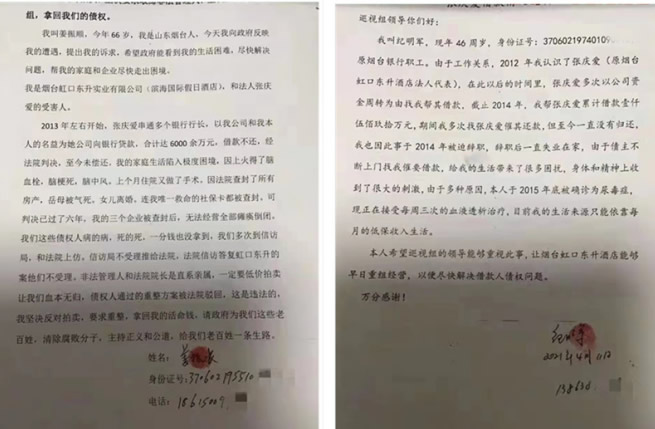 组，拿回我们的债权。
我叫姜振顺，今年 66 岁，我是山东烟台人，今天我向政府反映
我的遭遇，提出我的诉求，希望政府能看到我的生活困难，尽快解决
问题，帮我的家庭和企业尽快走出困境。
我是烟台虹口东升实业有限公司（滨海国际假日酒店），和法人张庆
爱的受害人。
2013 年左右开始，张庆爱串通多个银行行长，以我公司和我本
人的名益为她公司向银行贷款，合计达 6000 余万元，借款不还，经
法院判决，至今未偿还，我的家庭生活陷入极度困境，因上火得了脑
血栓，脑梗死，脑中风，上个月住院又做了手术。因法院查封了所有
房产，岳母被气死，女儿离婚，连我唯一救命的社保卡都被查封，可
判决已过了六年，我的三个企业被查封后，无法经营全部瘫痪倒闭。
我们这些债权人病的病，死的死，一分钱也没拿到，我们多次到信访
局，和法院上访。信访局不受理推给法院，法院信访答复虹口东升的
案他们不受理。非法管理人和法院院长是直系亲属，一定要低价拍卖
让我们血本无归，债权人通过的重整方案被法院驳回，这是违法的，
我坚决反对拍卖，要求重整，拿回我的活命钱。请政府为我们这些老
百姓，清除腐败分子，主持正义和公道，给我们老百姓一条生路。
姓名：
身份证号：370602195510
电话：18615009
张庆爱借款
巡视组领导你们好：
我叫纪明军，现年 46 周岁，身份证号：37060219740109
原烟台银行职工。由于工作关系，2012 年我认识了张庆爱（原烟台
虹口东升酒店法人代表），在此以后的时间里，张庆爱多次以公司资
金周转为由找我帮其借款，截止 2014 年，我帮张庆爱累计借款壹仟
伍佰玖拾万元，期间我多次找张庆爱催其还款，但至今一直没有归还，
我也因此事于 2014 年被迫辞职，辞职后一直失业在家，由于债主不
断上门找我催要借款，给我的生活带来了很多困扰，身体和精神上收
到了很大的刺激，由于多种原因，本人于 2015 年底被确诊为尿毒症，
现正在接受每周三次的血液透析治疗，目前我的生活来源只能依靠每
月的低保收入生活。
本人希望巡视组的领导能够重视此事，让烟台虹口东升酒店能够
早日重组经营，以便尽快解决借款人债权问题。
万分感谢！
2021年4月11日
138630